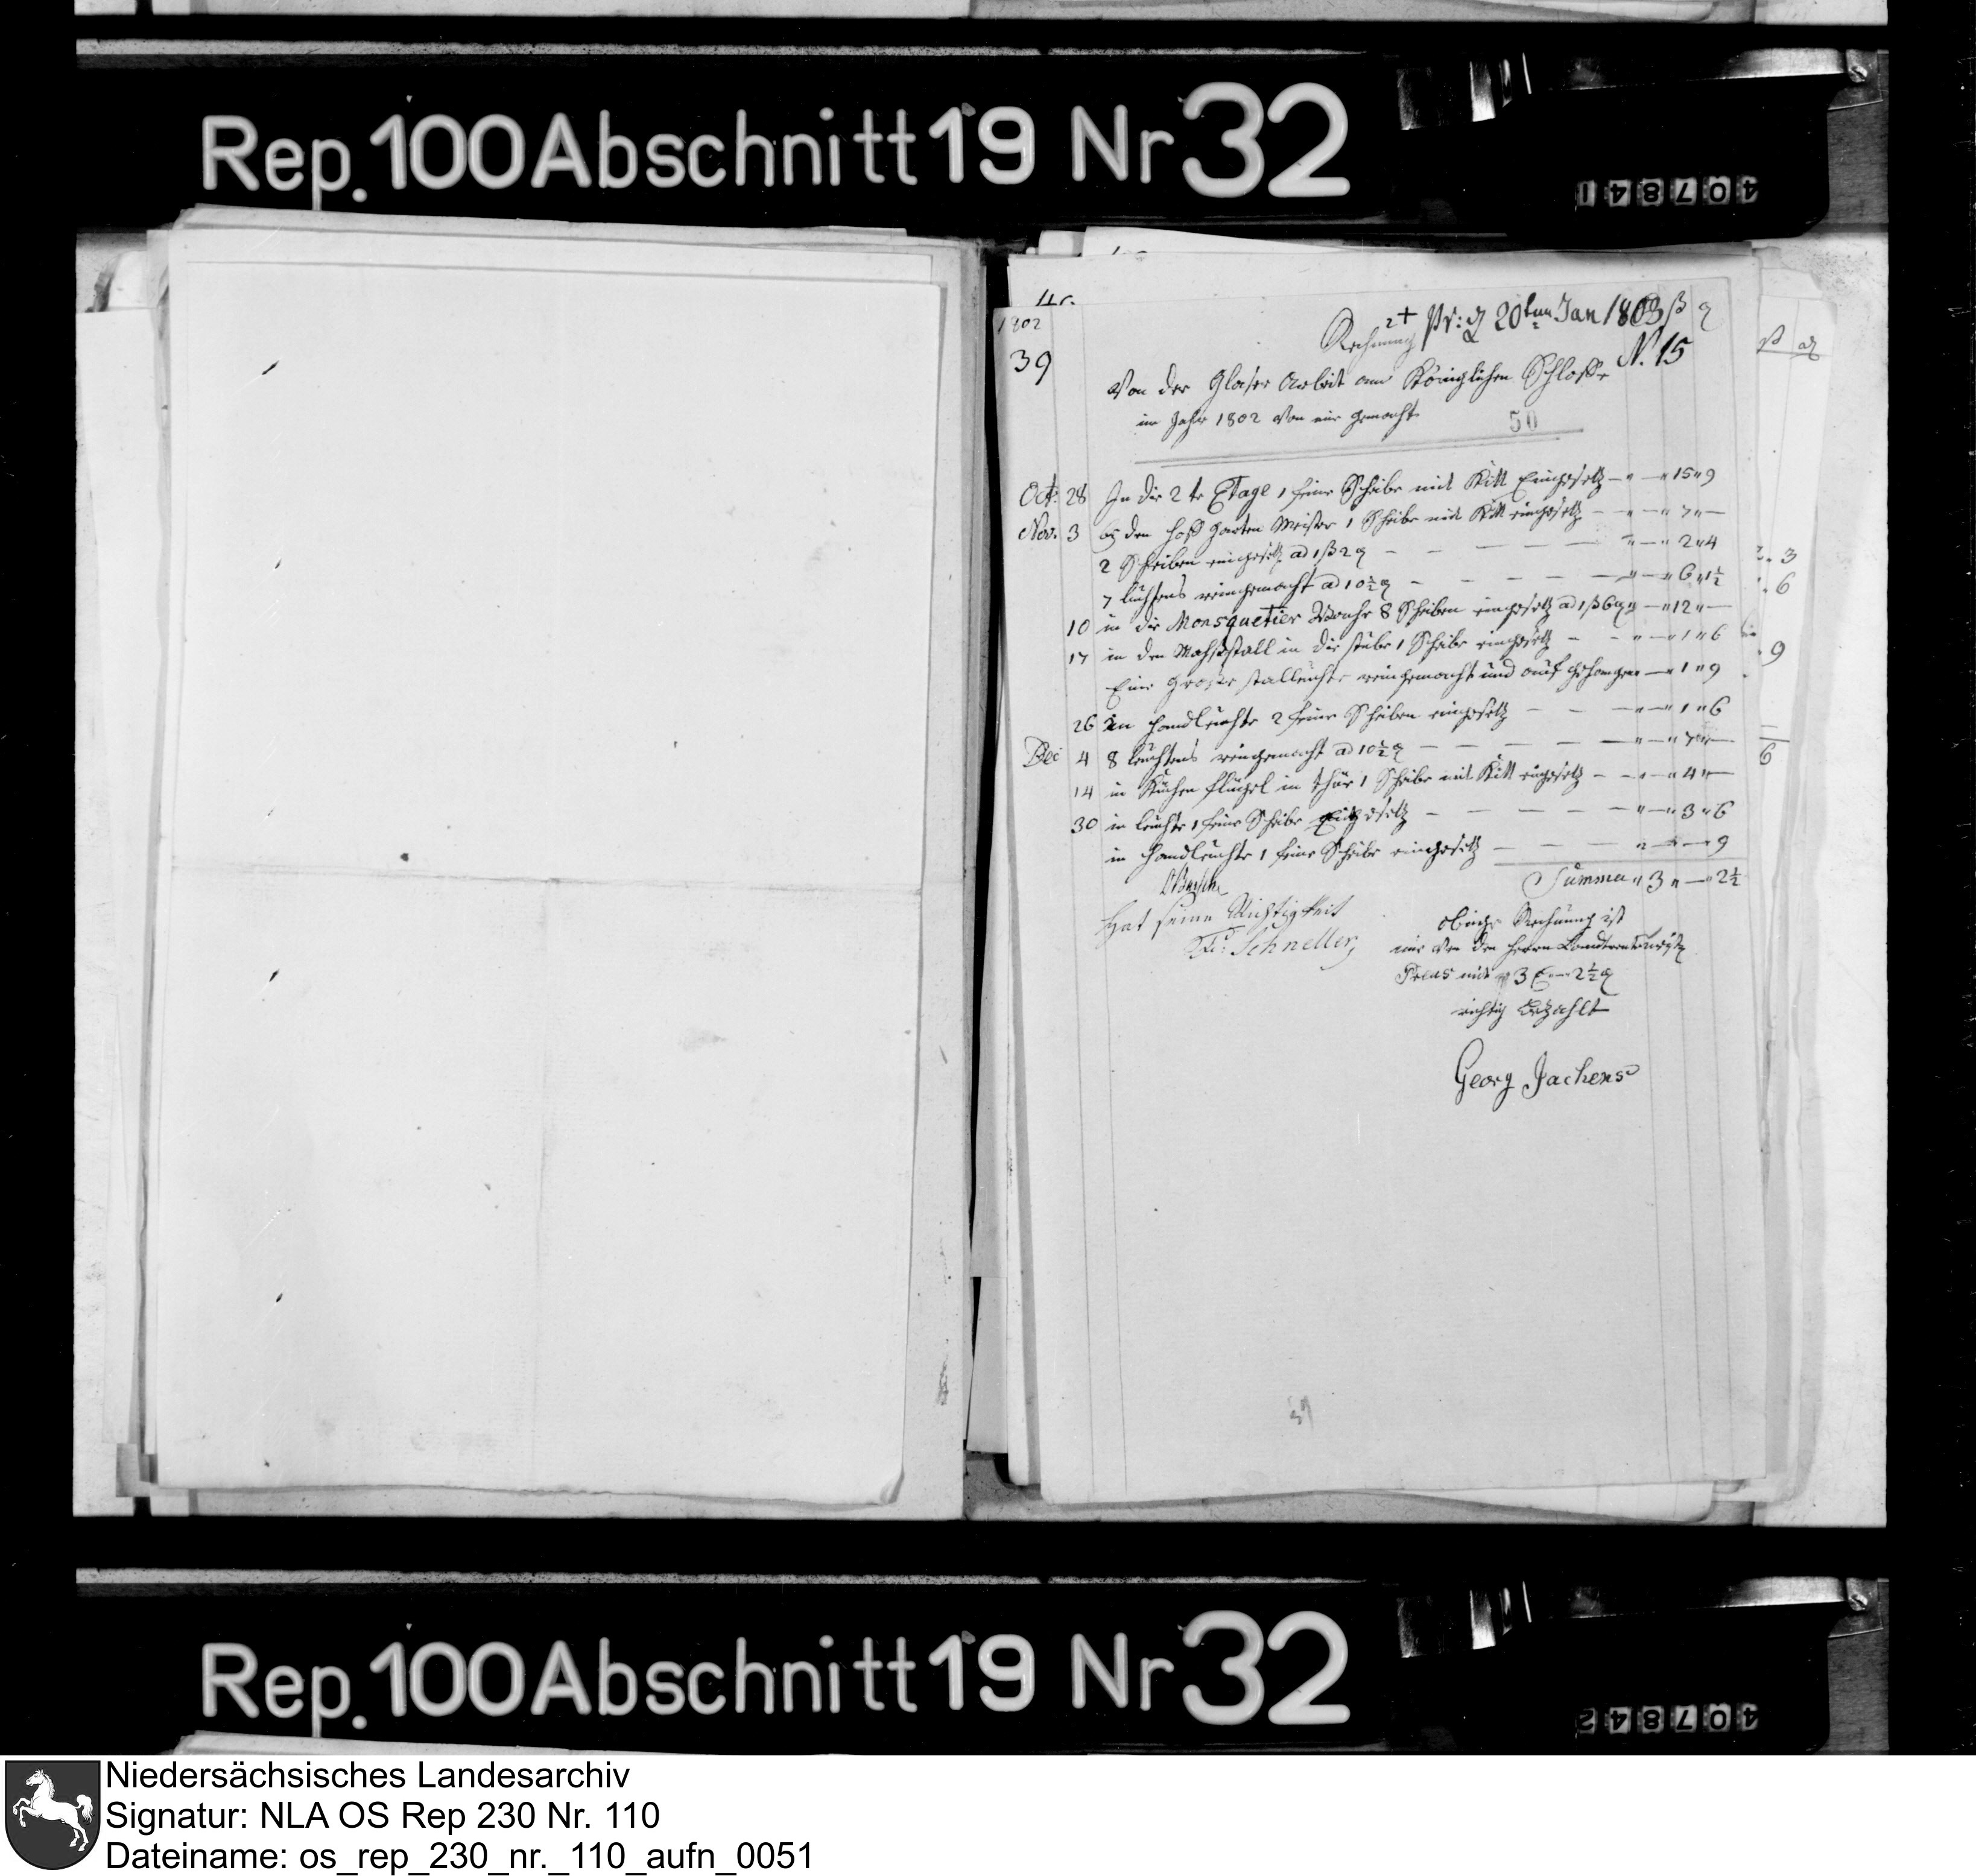 Rep. 100 Abschnitt 19 Nr 32
407841
1802
39
2+ Pr: d 20ten Jan 1803 ß
Rechnung
N. 15
Von der Glaser Arbeit am Königlichen Schloße
im Jahr 1802 von mir gemacht
50
Oct: 28 In die 2te Etage 1 feine Scheibe mit Kitt Eingesetz — " — " 15 " 9
Nov. 3 den Hoff Garten Meister 1 Scheibe mit Kitt eingesetz — " — " 7 " —
2 Scheiben eingesetz ad 1 ß 2 — " — " 2 " 4
7 reingemacht ad 10½ — " — " 6 " 1½
10 in die Mousquetier Wache 8 Scheiben eingesetz ad 1 ß 6 " — " 12 " —
17 in den in die stube 1 Scheibe eingesetz — " — " 1 " 6
Eine Große stalleuchte reingemacht und auf gehangen " — " 1 " 9
26 in Handleuchte 2 feine Scheiben eingesetz — " — " 1 " 6
Dec 4 8 leuchtens reingemacht ad 10½ — " — " 7 " —
14 in Küchen flügel in thür 1 Scheibe mit Kitt eingesetz — " — " 4 " —
30 in leuchte 1 feine Scheibe Eingesetz — " — " 3 " 6
in Handleuchte 1 feine Scheibe eingesetz — " — " — 9
Summa " 3 " — " 2½
Hat seine Richtigkeit
Schneller
Obige Rechnung ist
mir von den Herrn
mit 3 — 2½
richtig Bezahlt
Georg Jachens
Rep. 100 Abschnitt 19 Nr 32
407842
Niedersächsisches Landesarchiv
Signatur: NLA OS Rep 230 Nr. 110
Dateiname: os_rep_230_nr._110_aufn_0051